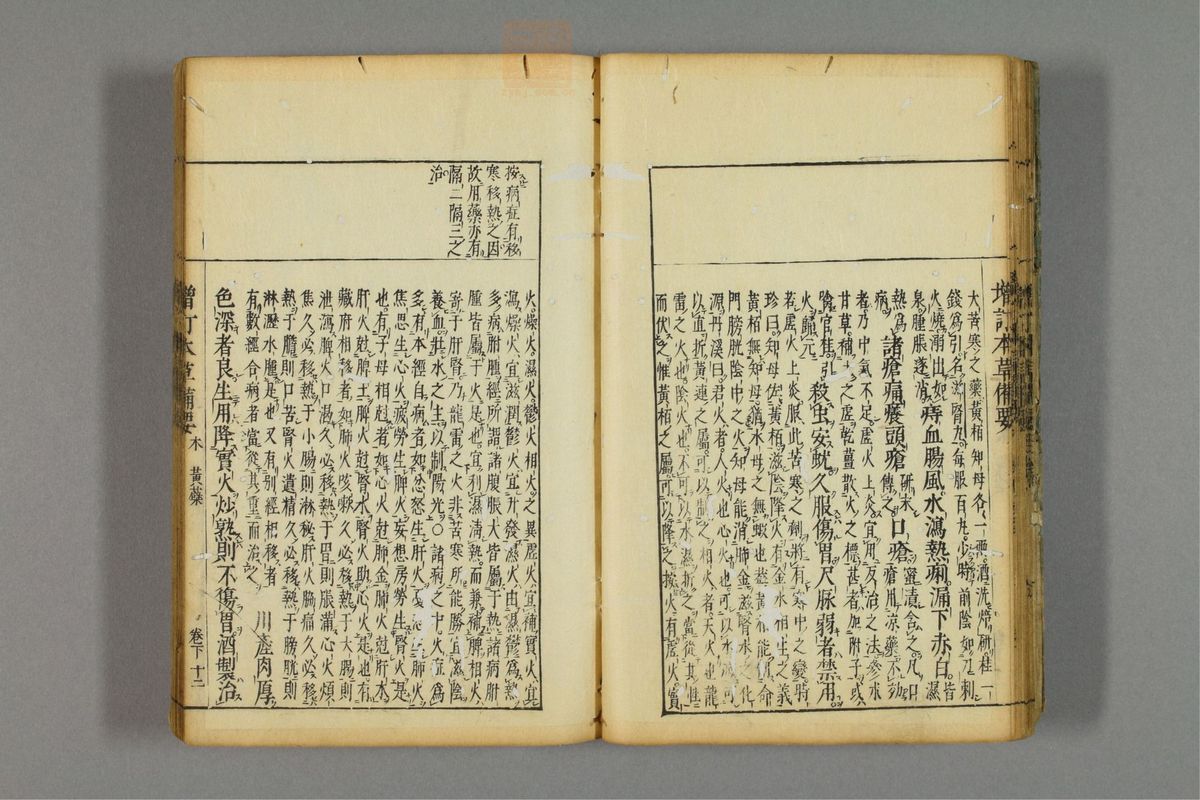 增訂本草備要
大苦寒之藥黃栢知母各一兩酒洗焙研桂一
錢為引名滋腎丸每服百丸少時前陰如刀刺
火燒溺出如泉腫脹遂消痔血腸風水瀉熱痢漏下赤白皆濕
熱為病諸瘡痛癢頭瘡研末傅之口瘡蜜漬含之凡口瘡用涼藥不効
者乃中氣不足虛火上炎宜用反治之法參朮
甘草補土之虛乾薑散火之標甚者加附子或
噙官桂引火歸元殺虫安蚘久服傷胃尺脉弱者禁用
若虛火上炎服此苦寒之劑將有寒中之變時
珍曰知母佐黃栢滋陰降火有金水相生之義
黃栢無知母猶水母之無蝦也蓋黃栢能制命
門膀胱陰中之火知母能消肺金滋腎水之化
源丹溪曰君火者人火也心火也可以水滅可
以直折黃連之屬可以制之相火者天火也龍
雷之火也陰火也不可以水濕折之當從其性
而伏之惟黃栢之屬可以降之按火有虛火實
按病症有移
寒移熱之因
故用藥亦有
隔二隔三之
治
火燥火濕火鬱火相火之異虛火宜補實火宜
瀉燥火宜滋潤鬱火宜升發濕火由濕鬱為熱
多病胕腫經所謂諸腹脹大皆屬于熱諸病胕
腫皆屬于火是也宜利濕清熱而兼補脾相火
寄于肝腎乃龍雷之火非苦寒所能勝宜滋陰
養血壯水之主以制陽光○諸病之中火症為
多有本經自病者如忿怒生肝火憂思生脾火
焦思生心火疲勞生脾火妄想房勞生腎火是
也有子母相剋者如心火尅肺金肺火尅肝木
肝火尅脾土脾火尅腎水腎火助心火是也有
藏府相移者如肺火咳嗽久必移熱于大腸則
泄瀉脾火口瀉久必移熱于胃則脹滿心火煩
焦久必移熱于小腸則淋秘肝火脇痛久必移
熱于膽則口苦腎火遺精久必移熱于膀胱則
淋瀝水腫是也又有別經相移者
有數經合病者當從其重而治之
川產肉厚
色深者良生用降實火炒熟則不傷胃酒製治
增訂本草備要 木 黃蘗 卷下 十二